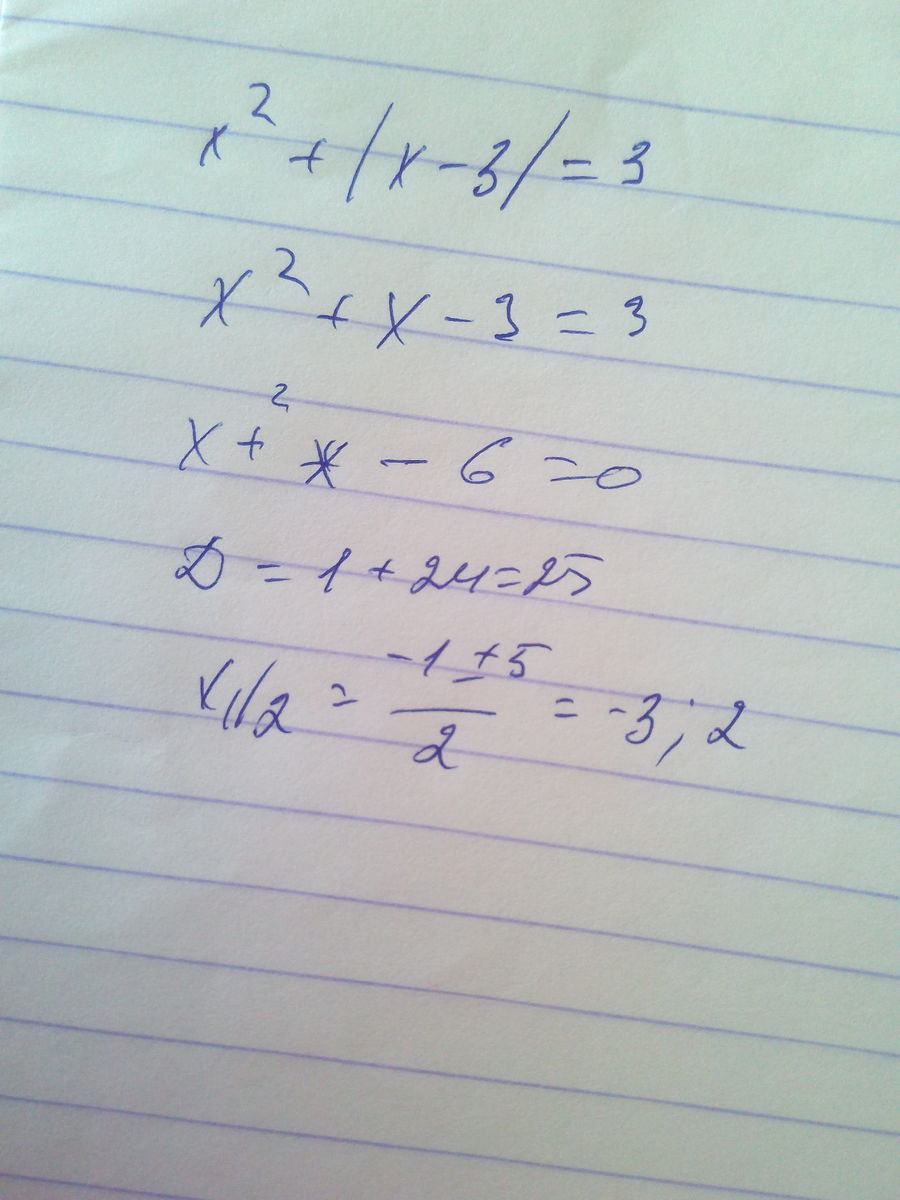 x² + |x - 3| = 3
x² + x - 3 = 3
x +² x - 6 = 0
D = 1 + 24 = 25
x₁/₂ = (-1 ± 5)/2 = -3; 2